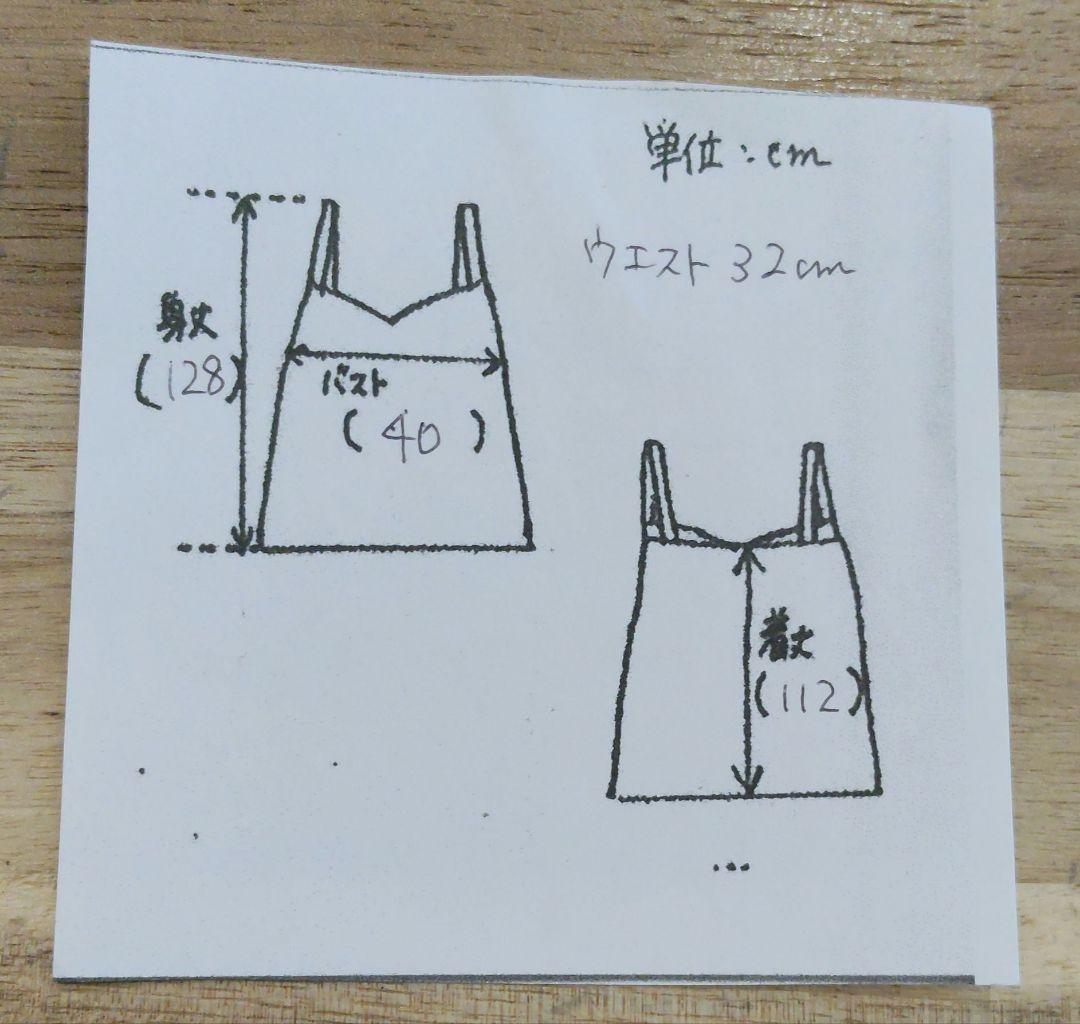 単位:cm
ウエスト 32cm
身丈
(128)
バスト
(40)
着丈
(112)
...